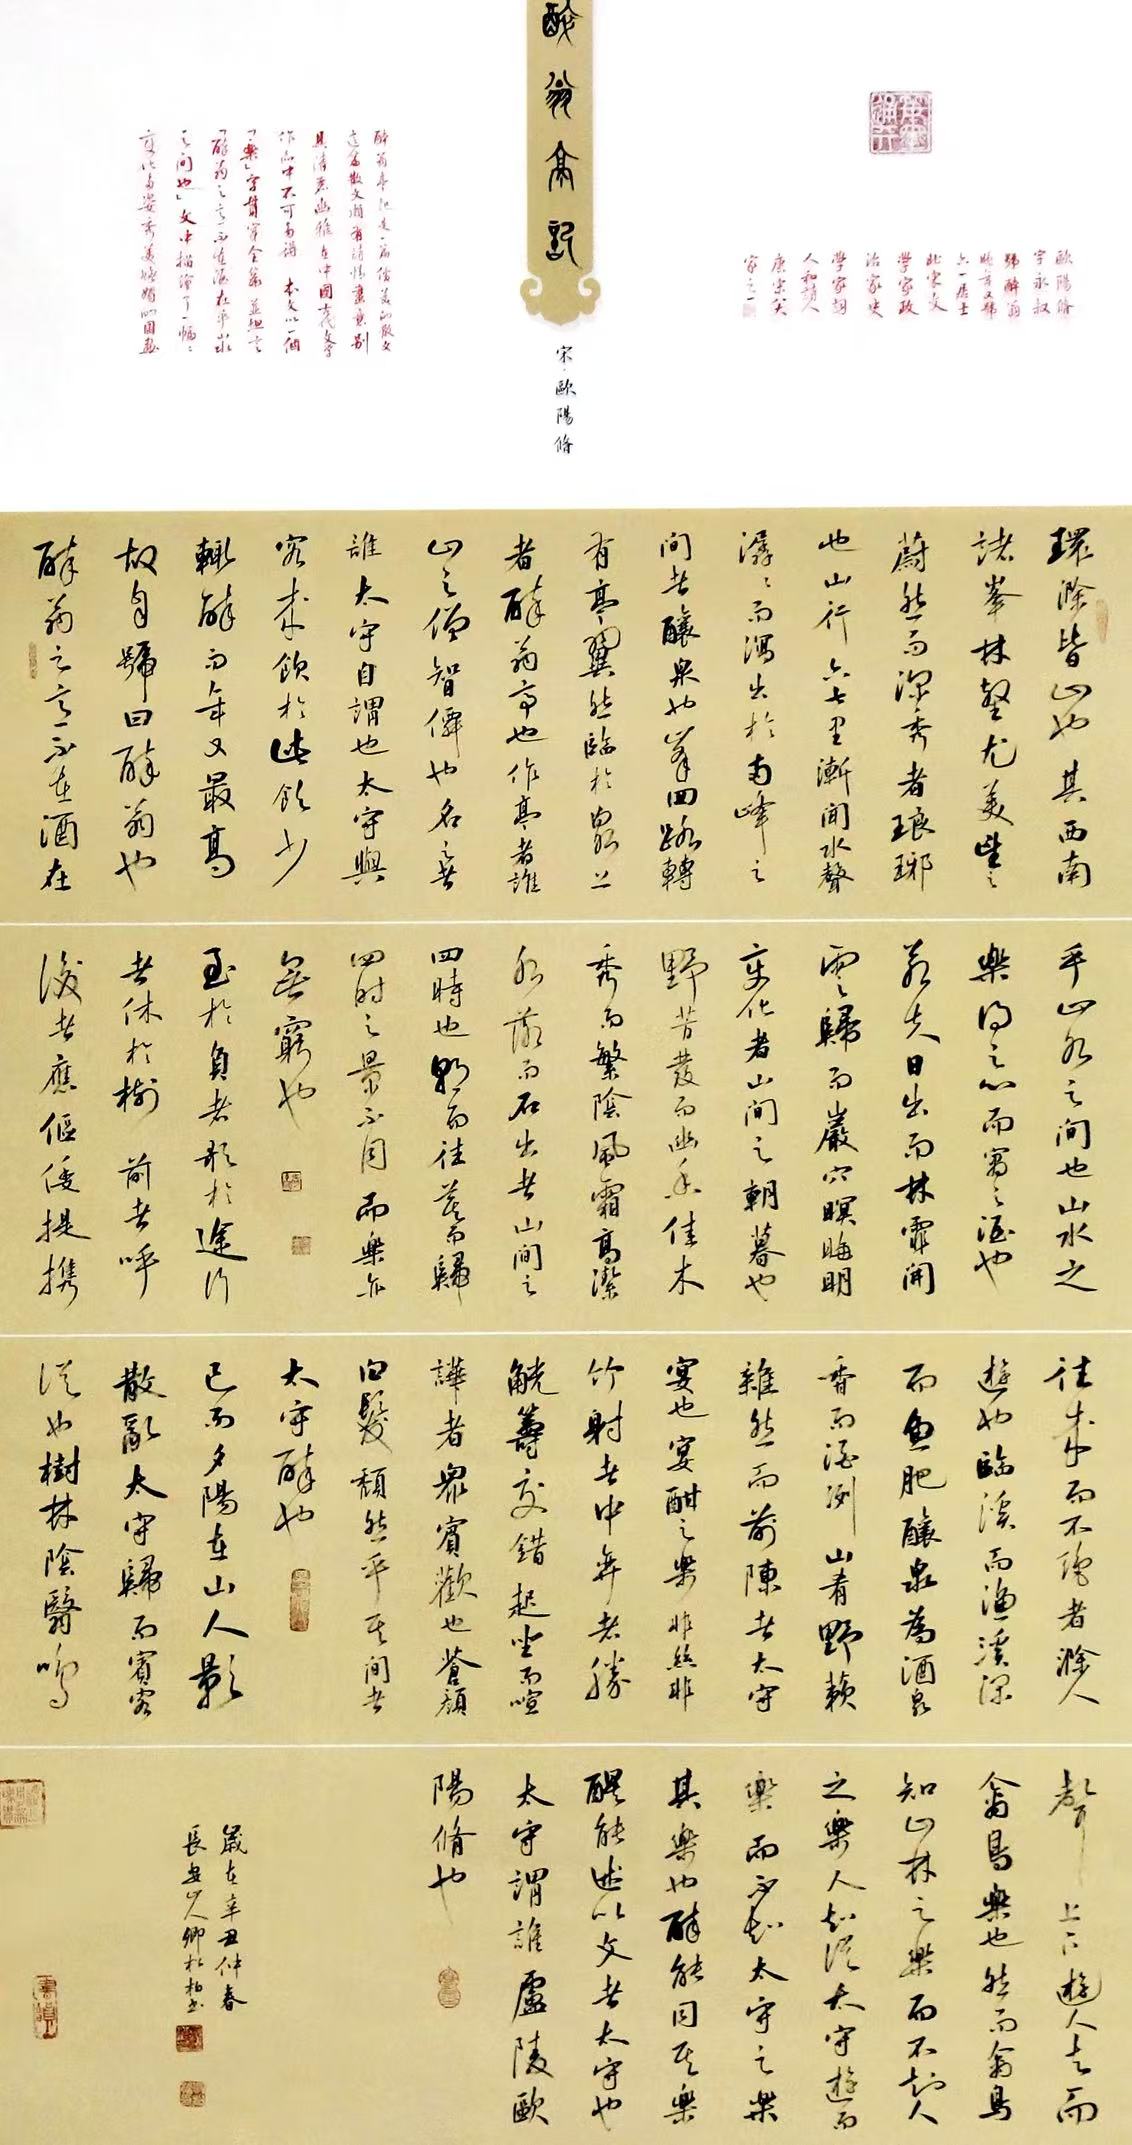 醉翁亭記
宋·歐陽脩
歐陽脩
字永叔
號醉翁
晚年又號
六一居士
北宋文
學家政
治家史
學家詞
人和詩人
唐宋八大
家之一
醉翁亭記是一篇優美的散文
這篇散文頗有詩情畫意別
具清麗幽雅在中國古代文學
作品中不可多得 本文以一個
「樂」字貫穿全篇 並坦言
「醉翁之意不在酒在乎山水
之間也」文中描繪了一幅幅
變化多姿秀美嫵媚的圖畫
環滁皆山也其西南
諸峯林壑尤美望之
蔚然而深秀者琅琊
也山行六七里漸聞水聲
潺潺而瀉出於兩峰之
間者釀泉也峯回路轉
有亭翼然臨於泉上
者醉翁亭也作亭者誰
山之僧智僊也名之者
誰太守自謂也太守與
客來飲於此飲少
輒醉而年又最高
故自號曰醉翁也
醉翁之意不在酒在
乎山水之間也山水之
樂得之心而寓之酒也
若夫日出而林霏開
雲歸而巖穴暝晦明
變化者山間之朝暮也
野芳發而幽香佳木
秀而繁陰風霜高潔
水落而石出者山間之
四時也朝而往暮而歸
四時之景不同而樂亦
無窮也
至於負者歌於途行
者休於樹 前者呼
後者應傴僂提攜
往來而不絕者滁人
遊也臨溪而漁溪深
而魚肥釀泉為酒泉
香而酒冽山肴野蔌
雜然而前陳者太守
宴也宴酣之樂非絲非
竹射者中弈者勝
觥籌交錯起坐而喧
譁者衆賓歡也蒼顏
白髮頹然乎其間者
太守醉也
已而夕陽在山人影
散亂太守歸而賓客
從也樹林陰翳鳴
聲上下遊人去而
禽鳥樂也然而禽鳥
知山林之樂而不知人
之樂人知從太守遊而
樂而不知太守之樂
其樂也醉能同其樂
醒能述以文者太守也
太守謂誰廬陵歐
陽脩也
歲在辛丑仲春